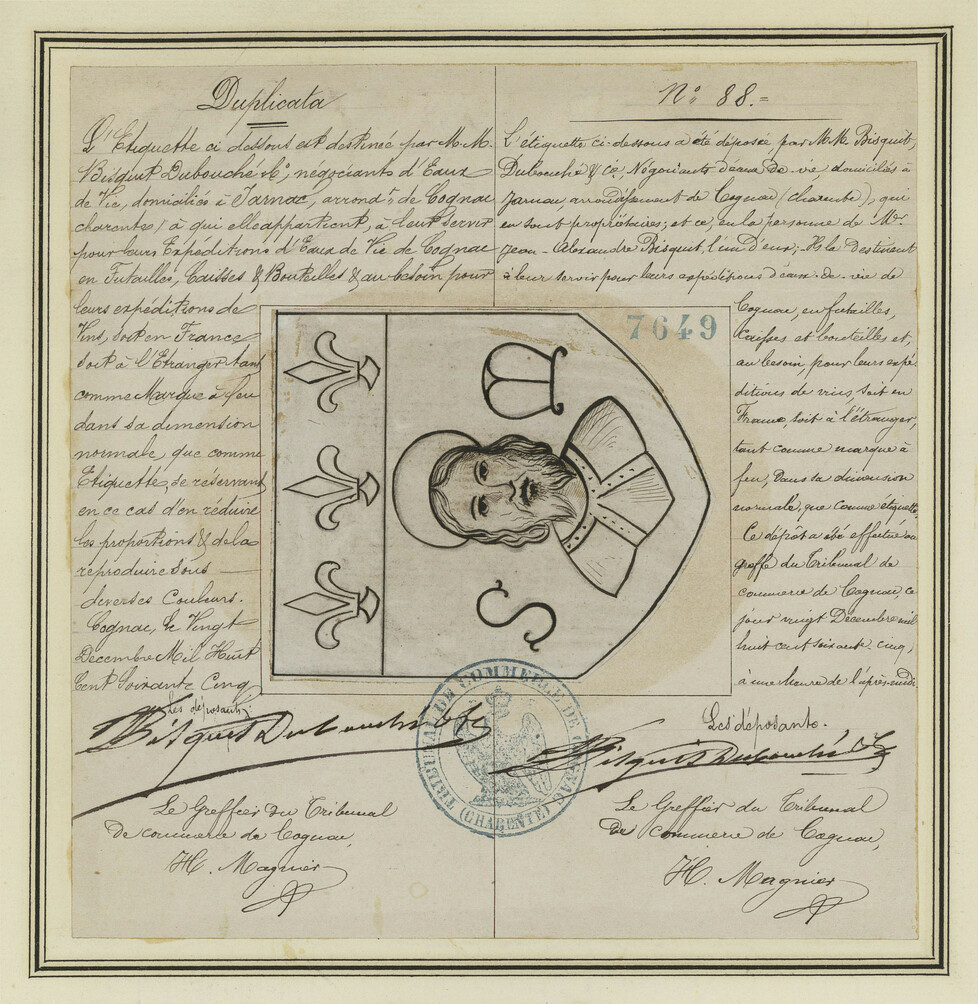 Duplicata
L'Etiquette ci dessous est destinée par M.M.
Bisquit Dubouché & Cº, négociants d'Eaux
de Vie, domiciliés à Jarnac, arrondt de Cognac
charente, à qui elle appartient, à leur servir
pour leurs Expéditions d'Eaux de Vie de Cognac
en Futailles, Caisses & Bouteilles & au besoin pour
leurs expéditions de
Vins, soit en France
soit à l'Etranger tant
comme Marque à feu
dans sa dimension
normale, que comme
Etiquette, se réservant
en ce cas d'en réduire
les proportions & de la
reproduire sous
diverses Couleurs.
Cognac, le Vingt
Décembre Mil Huit
Cent Soixante Cinq
Les déposants,
Bisquit Dubouché & Co
Le Greffier du Tribunal
de commerce de Cognac,
H. Magnier
Nº 88.=
L'étiquette ci-dessous a été déposée par M.M. Bisquit,
Dubouché & Cie, Négociants d'eaux-de-vie, domiciliés à
Jarnac, arrondissement de Cognac (charente), qui
en sont propriétaires; et ce, en la personne de Mr
Jean-Alexandre Bisquit, l'un d'eux; Ils la destinent
à leur servir pour leurs expéditions d'eaux-de-vie de
Cognac, en futailles,
Caisses et bouteilles et,
au besoin pour leurs expé-
ditions de vins, soit en
France, soit à l'étranger,
tant comme marque à
feu, dans sa dimension
normale, que comme étiquette.
Ce dépôt a été effectué au
greffe du Tribunal de
commerce de Cognac, ce
jour vingt Décembre mil
huit cent soixante-cinq,
à une heure de l'après-midi.
Les déposants.
Bisquit Dubouché & Co
Le Greffier du Tribunal
de commerce de Cognac,
H. Magnier
7649
S
TRIBUNAL DE COMMERCE DE COGNAC
(CHARENTE)